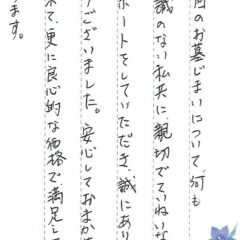 回のお墓じまいについて、何も
識のない私共に、親切でていねいな
ポートをしていただき、誠にあり
うございました。安心しておまか
来て、更に良心的な価格で満足して
ます。